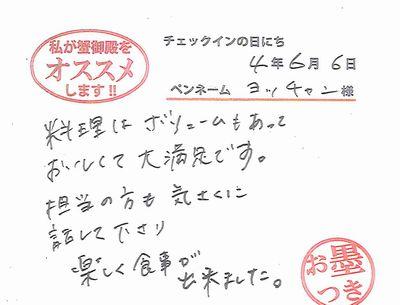 私が蟹御殿を
オススメ
します!!
チェックインの日にち
4年6月6日
ペンネーム ヨッチャン様
料理はボリュームもあって
おいしくて大満足です。
担当の方も気さくに
話して下さり
楽しく食事が
出来ました。
お墨
つき